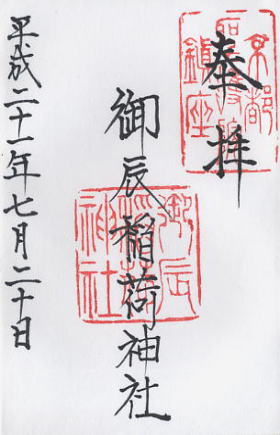 奉拝
御辰稲荷神社
平成二十一年七月二十日
御辰
稲荷
神社